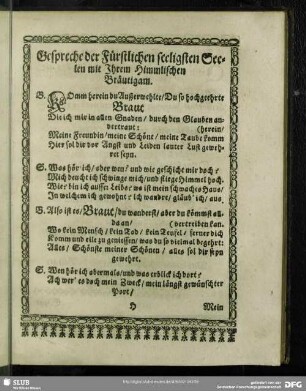 Gespreche der Fürstlichen seeligsten See-
len mit Ihrem Himmlischen
Bräutigam.
B. KOmm herein du Außerwehlte/ Du so hochgeehrte
Braut
Die ich mir in allen Gnaden/ durch den Glauben an-
vertraut: (herein/
Meine Freundin/ meine Schöne/ meine Taube komm
Hier sol dir vor Angst und Leiden lauter Lust geweh-
ret seyn.
S. Was hör ich/ aber wau/ und wie geschicht mir doch?
Mich deucht ich schwinge mich/ und stiege Himmel hoch.
Wie? bin ich ausser Leibe? wo ist mein schwaches Haus/
In wilchem ich gewohnet ich wandre/ gläub' ich/ aus.
B. Also ist es/ Braut/ du wanderst/ aber du kömmst all-
da an/ (vertreiben kan.
Wo kein Mensch/ kein Tod/ kein Teufel/ ferner dich
Komm und eile zu geniessen/ was du so vielmal begehrt:
Alles/ Schönste meiner Schönen/ alles sol dir seyn
gewehrt.
S. Wen hör ich abermals/ und was erblick ich dort?
Ach wer? es doch mein Zweck/ mein längst gewünschter
Port/
D Mein
SLUB
Wir führen Wissen.
DFG